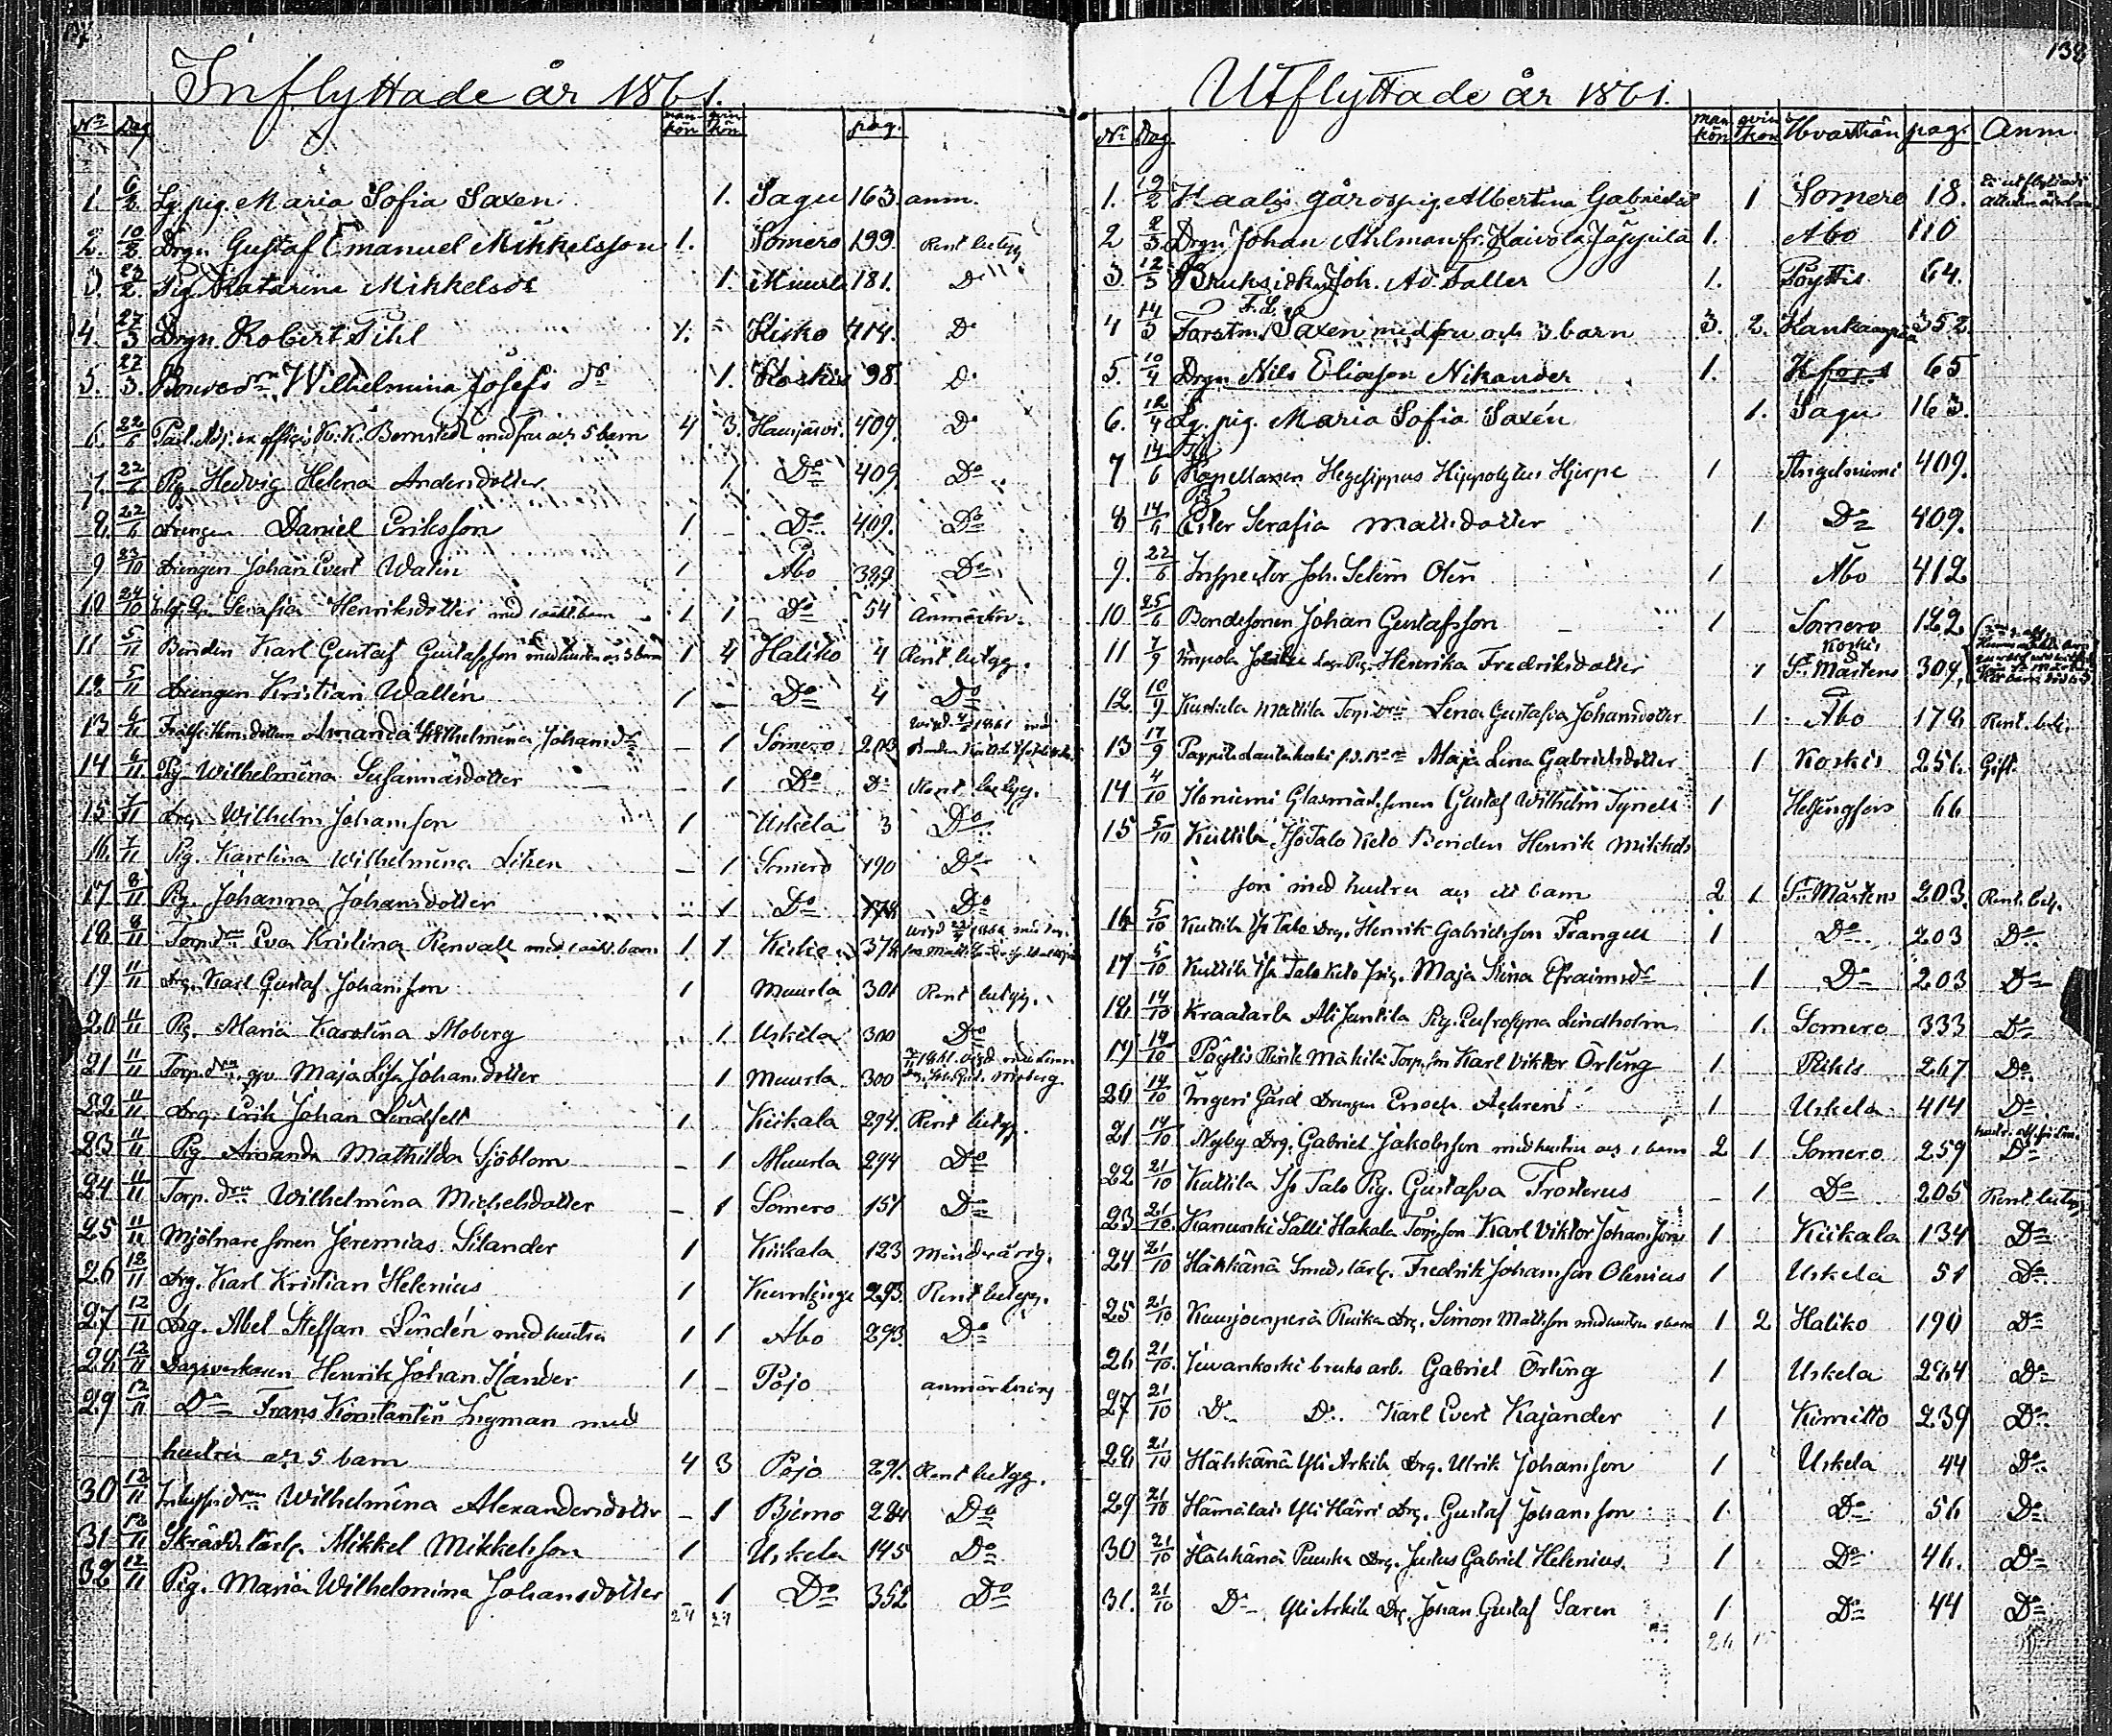 138
Inflyttade år 1861.
No Dag mankön qvinkön pag.
1. 6/2 Lg. pig. Maria Sofia Saxen 1. Sagu 163. anm.
2. 10/2 Drgn Gustaf Emanuel Mikkelsson 1. Somero 199. Rent betyg
3. 23/2 Pig. Katarina Mikkelsdr 1. Muurla 181. Do
4. 27/3 Drgn. Robert Pihl 1. Kisko 414. Do
5. 27/3. Wilhelmina Josefs dr 1. Koskis 98. Do
6. 22/6 med fru och 5 barn 4 3. Hausjärvi. 409. Do
7. 22/6 Pig. Hedvig Helena Andersdotter 1 Do 409. Do
8. 22/6 Drengen Daniel Eriksson 1 Do 409. Do
9 23/10 Drengen Johan Evert Walin 1 Åbo 399 Do
10 24/10 Serafia Henriksdotter med 1 oäkt. barn 1 1 Do 54 Anmärkn.
11 5/11 Bonden Karl Gustaf Gustafsson med hustru och 3 barn 1 4 Haliko 4 Rent betyg.
12. 5/11 Drengen Kristian Wallén 1 Do 4 Do
13 6/11 Amanda Wilhelmina Johansdr 1 Somero 203
14 6/11. Pig. Wilhelmina Susannasdotter 1 Do Do Rent betyg.
15 7/11 Drg. Wilhelm Johansson 1 Uskela 3 Do
16. 7/11 Pig. Karolina Wilhelmina Liken 1 Somero 190 Do
17 8/11 Pig. Johanna Johansdotter 1 Do 178 Do
18. 8/11 Torp.drn Eva Kristina Renvall med 1 oäkt. barn 1 1 Kisko 378
19 11/11 Drg. Karl Gustaf Johansson 1 Muurla 301 Rent betyg.
20 11/11 Pig. Maria Karolina Moberg 1 Uskela 300 Do
21 11/11 Maja Lisa Johansdotter 1 Muurla 300
22 11/11 Drg. Erik Johan Lindfelt 1 Kiikala 294. Rent betyg.
23 11/11 Pig Amanda Mathilda Sjöblom 1 Muurla 294 Do
24 11/11 Torp. drn Wilhelmina Michelsdotter 1 Somero 151 Do
25 11/11 Mjölnare sonen Jeremias Silander 1 Kiikala 123 Minderårig.
26 12/11 Drg. Karl Kristian Helenius 1 Kumlinge 293. Rent betyg.
27 12/11 Drg. Abel Steffan Lindén med hustru 1 1 Åbo 293 Do
28 12/11 Dagsverkaren Henrik Johan Ilander 1 Pojo anmärkning
29 12/11 Do Frans Konstantin Ligman med
hustru och 5 barn 4 3 Pojo 291. Rent betyg.
30 12/11 Wilhelmina Alexandersdotter 1 Bjerno 284 Do
31 12/11 Skräd. lärl. Mikkel Mikkelsson 1 Uskela 145 Do
32 12/11 Pig. Maria Wilhelmina Johansdotter 1 Do 352 Do
24 27
Utflyttade år 1861.
No Dag mankön qvinkön Hvarthän pag. Anm.
1. 19/2 Albertina Gabrielsdr 1 Somero 18.
2 2/3 Drgn Johan Ahlman fr. Kaivola Jäppilä 1. Åbo 110
3. 12/3 Joh. Ad. Faller 1. Pöyttis 64.
4 14/3 Forstm. F.L. Saxen med fru och 3 barn 3. 2. Kankaanpää 352
5. 10/4 Drgn Nils Eliasson Nikander 1. Hfors 65
6. 12/4 Lg. pig. Maria Sofia Saxén 1. Sagu 163.
7 14/6 Kapellanen Hegesippus Hippolytus Hjerpe 1 Angelniemi 409.
8 14/6 Pig Ester Serafia Mattsdotter 1 Do 409.
9. 22/6 Inspector Joh. Selim Olin 1 Åbo 412
10 25/6 Bondesonen Johan Gustafsson 1 Somero 122
11 7/9 Henrika Fredriksdotter 1 Koskis St Mårtens 304.
12. 10/9 Kurkela Mattila Torp.drn Lena Gustafva Johansdotter 1 Åbo 178 Rent bet.
13 17/9 Maja Lena Gabrielsdotter 1 Koskis 251. Gift.
14 4/10 Iloniemi Glasmäst. sonen Gustaf Wilhelm Tynell 1 Helsingfors 66
15 5/10 Kuttila Iso Talo Keto Bonden Henrik Mikkels
son med hustru och ett barn 2 1 St Mårtens 203. Rent bet.
16 5/10 Kuttila Iso Talo Drg. Henrik Gabrielsson Frangell 1 Do 203 Do
17 5/10 Kuttila Iso Talo Keto pig. Maja Stina Efraimsdr 1 Do 203 Do
18. 14/10 Kraatarla Ali Juntila Pig. Eufrosyna Lindholm 1. Somero 333 Do
19 14/10 Karl Viktor Örling 1 Pikis 267 Do
20 14/10 Gård Drengen Enoch Achrén 1 Uskela 414 Do
21 14/10 Nyby Drg. Gabriel Jakobsson med hustru och 1 barn 2 1 Somero 259 Do
22 21/10 Kuttila Iso Talo Pig. Gustafva Frosterus 1 Do 205 Rent betyg
23 21/10. Salli Hakala Torp.son Karl Viktor Johansson 1 Kiikala 134 Do
24 21/10 Häkkänä Smeds lärl. Fredrik Johansson Olenius 1 Uskela 51 Do
25 21/10 Drg. Simon Mattsson med hustru 1 barn 1 2 Haliko 190 Do
26 21/10. Juvankoski bruks arb. Gabriel Örling 1 Uskela 284 Do
27 21/10 Do Do Karl Evert Kajander 1 Kimitto 239 Do
28 21/10 Häkkänä Yli Arkila Drg. Ulrik Johansson 1 Uskela 44 Do
29 21/10 Yli Härri Drg. Gustaf Johansson 1 Do 56 Do
30 21/10 Häkkänä Drg. Justus Gabriel Helenius. 1 Do 46. Do
31. 21/10 Do Yli Arkila Drg. Johan Gustaf Saren 1 Do 44 Do